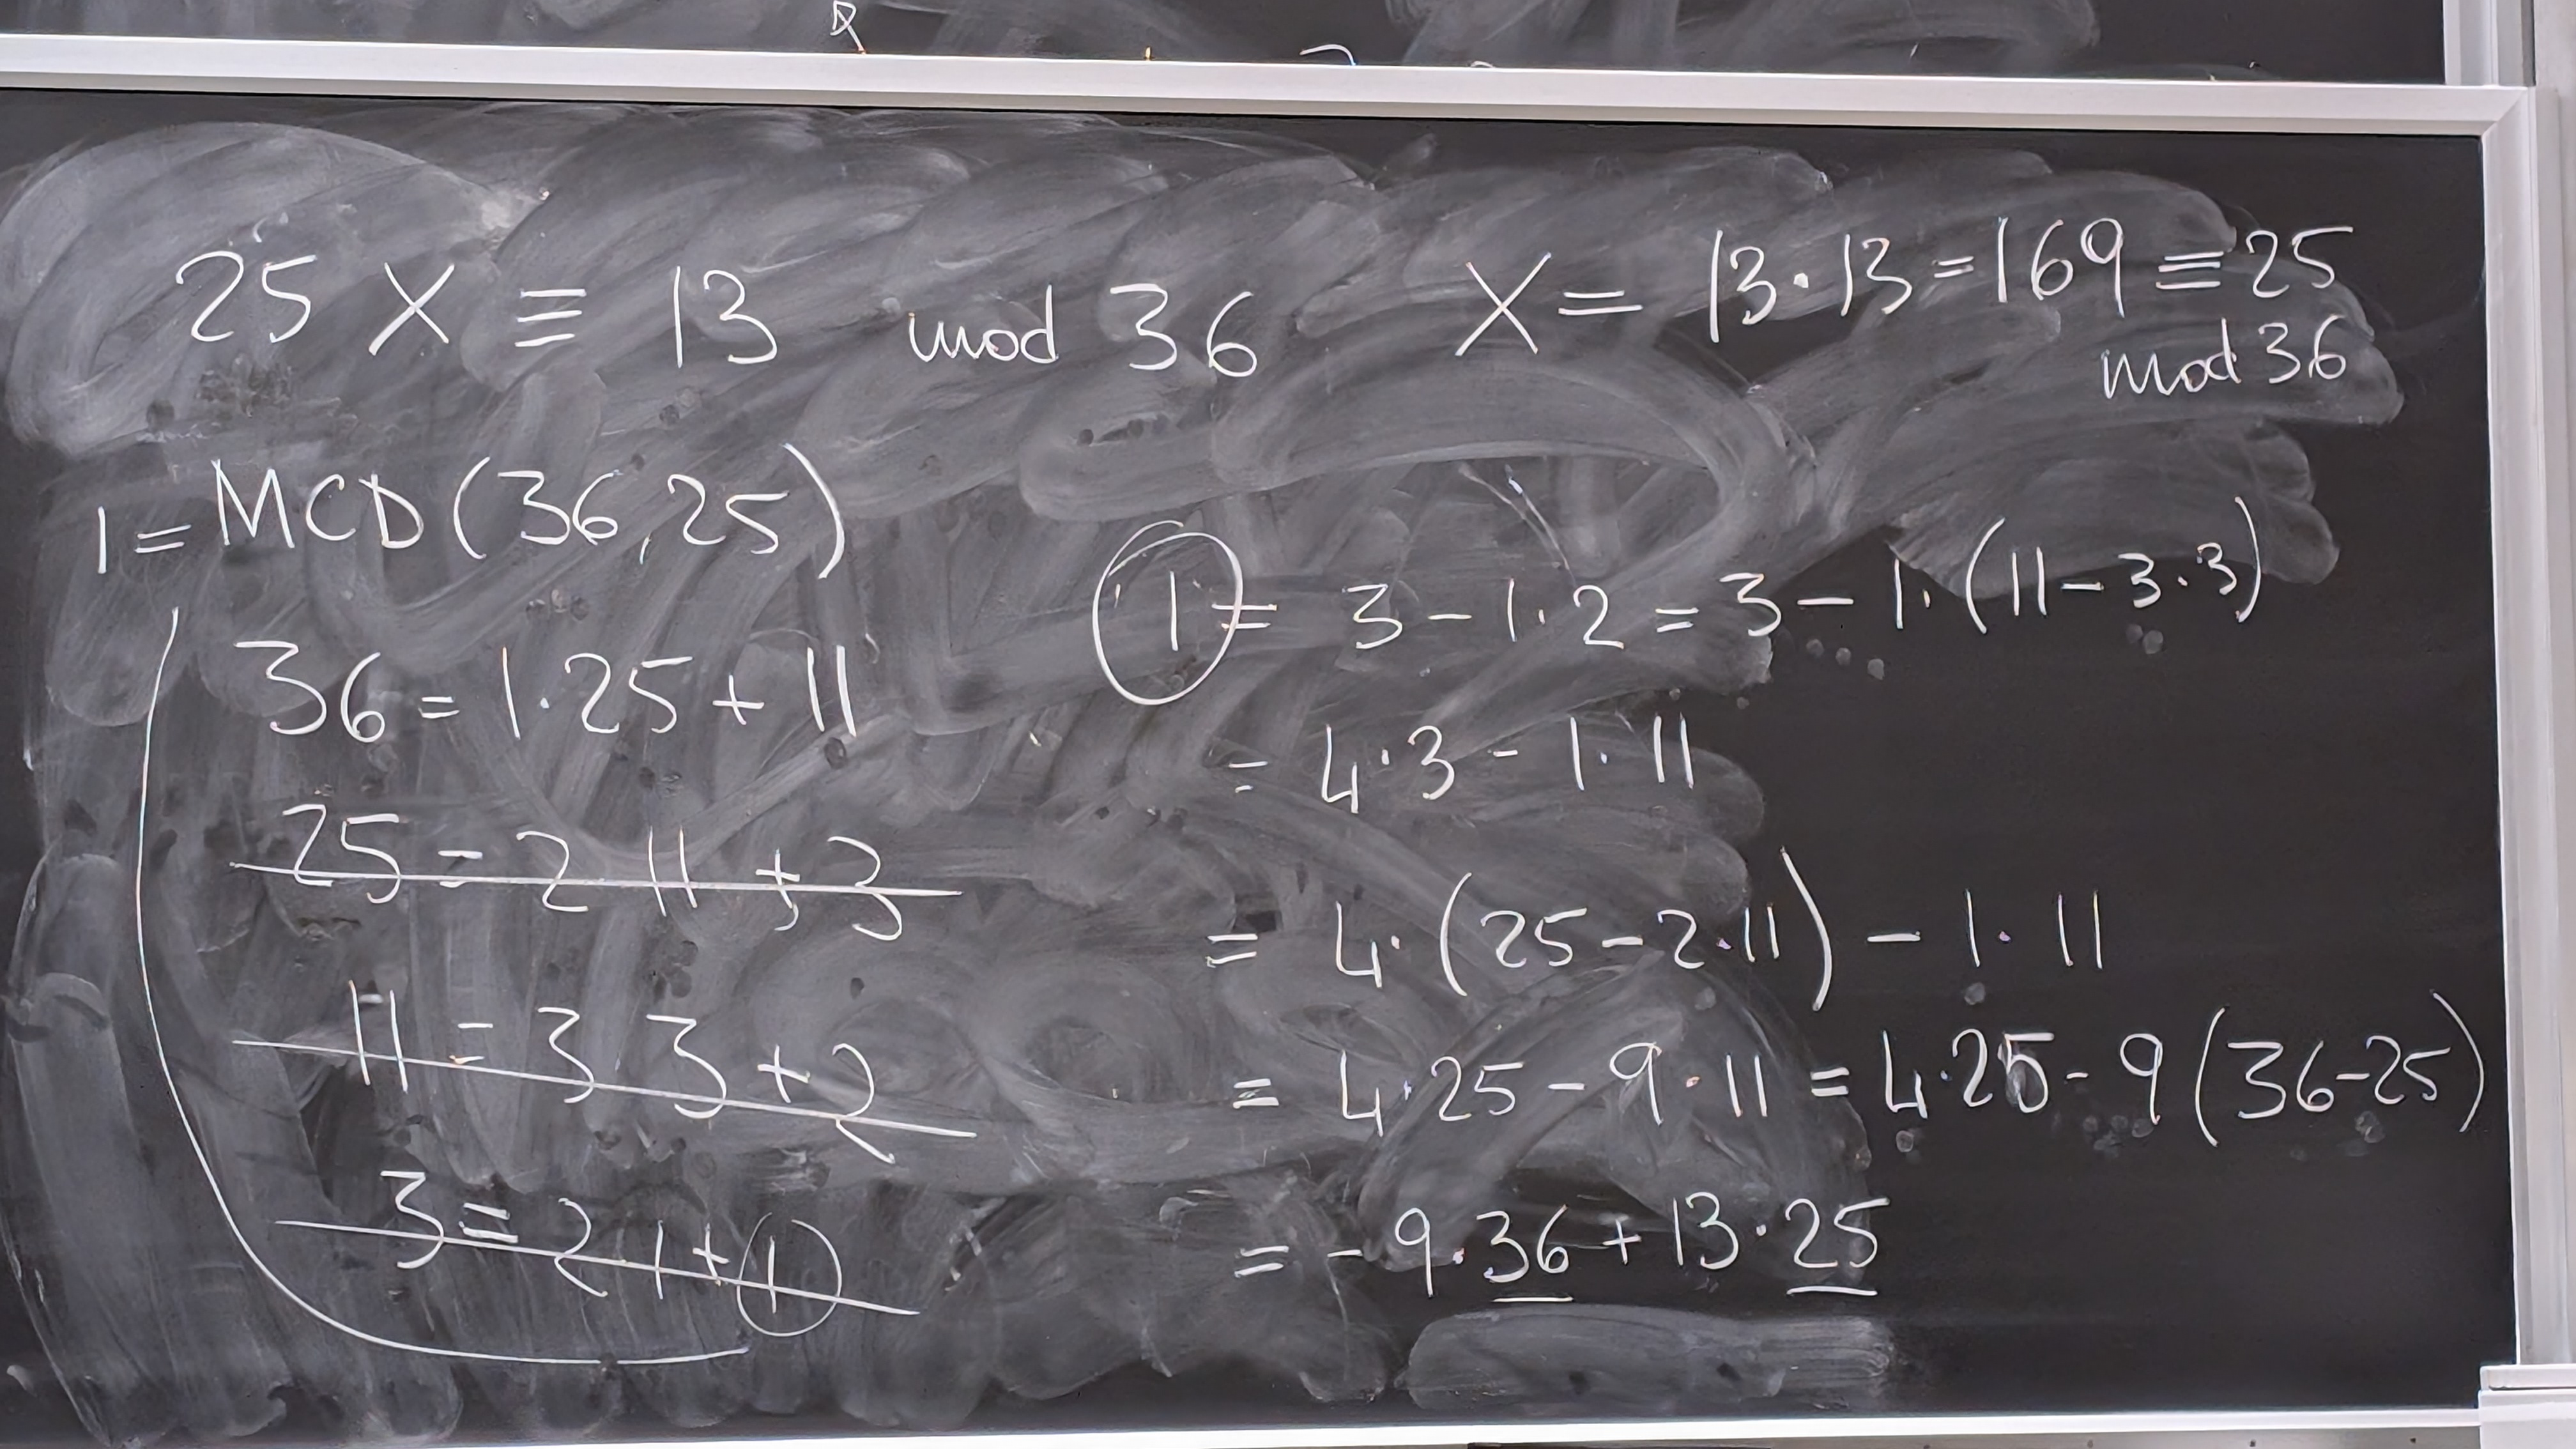 25 X ≡ 13 mod 36
X = 13·13 = 169 ≡ 25
mod 36
1 = MCD(36,25)
36 = 1·25 + 11
25 = 2 11 + 3
11 = 3 3 + 2
3 = 2 1 + 1
1 = 3 - 1·2 = 3 - 1·(11 - 3·3)
= 4·3 - 1·11
= 4·(25 - 2·11) - 1·11
= 4·25 - 9·11 = 4·25 - 9(36-25)
= -9·36 + 13·25